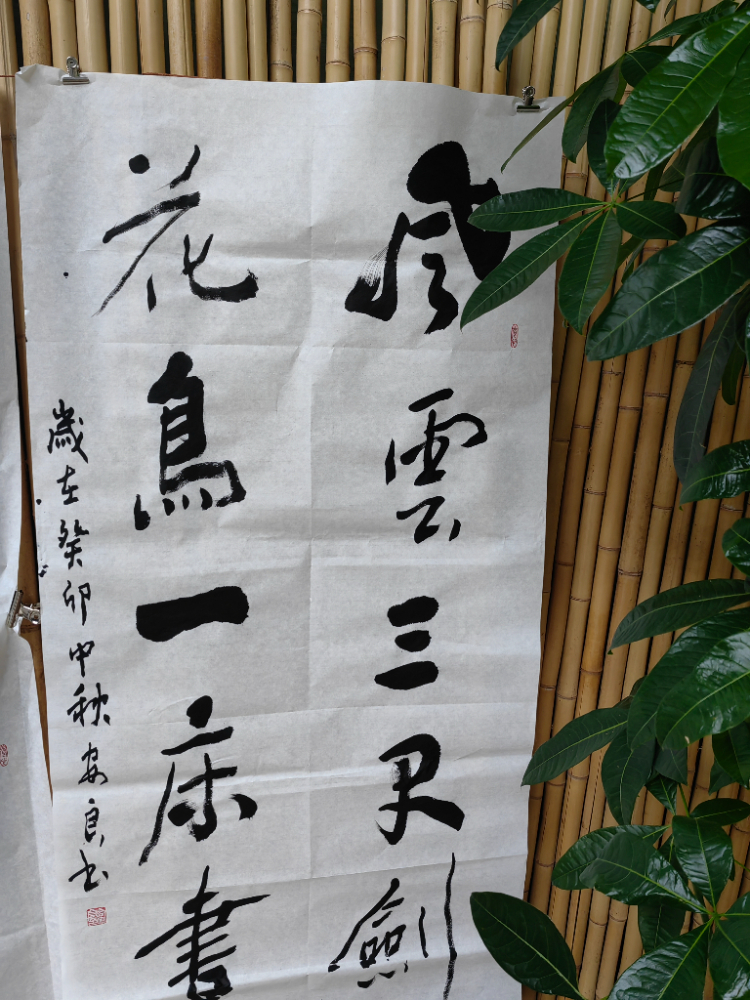 風雲三尺劍
花鳥一床書
歲在癸卯中秋安良书